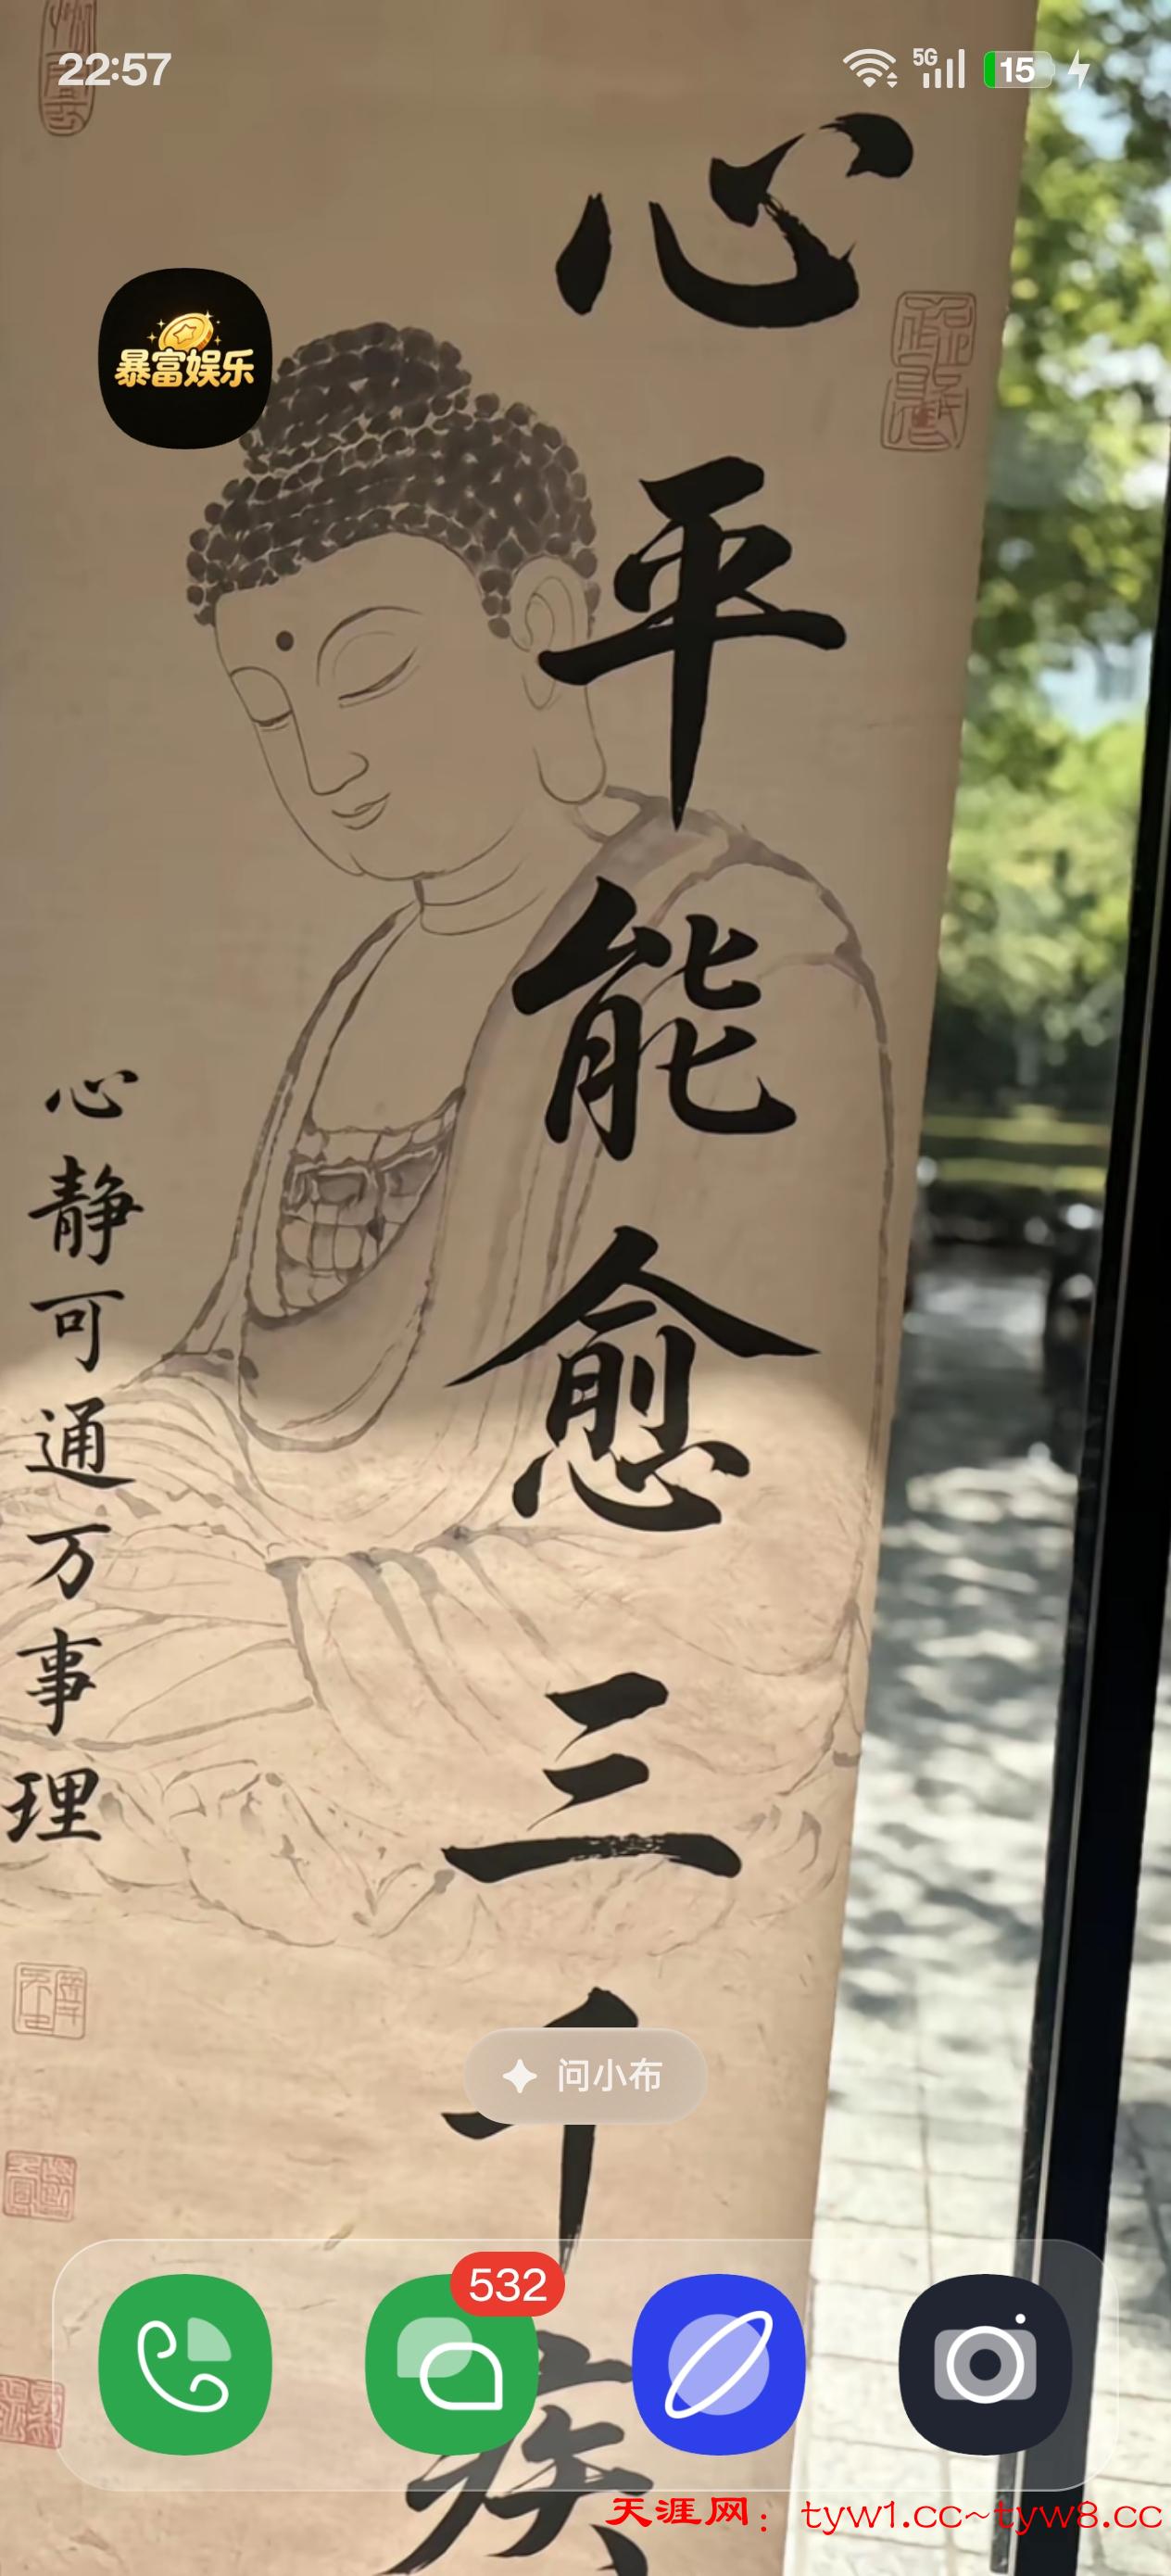 22:57
5G
15
暴富娱乐
心平能愈三千疾
心静可通万事理
问小布
532
天涯网：tyw1.cc~tyw8.cc